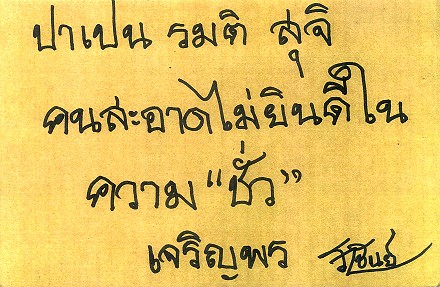 ปาเปน รมติ สุจิ
คนสะอาดไม่ยินดีใน
ความ "ชั่ว"
เจริญพร